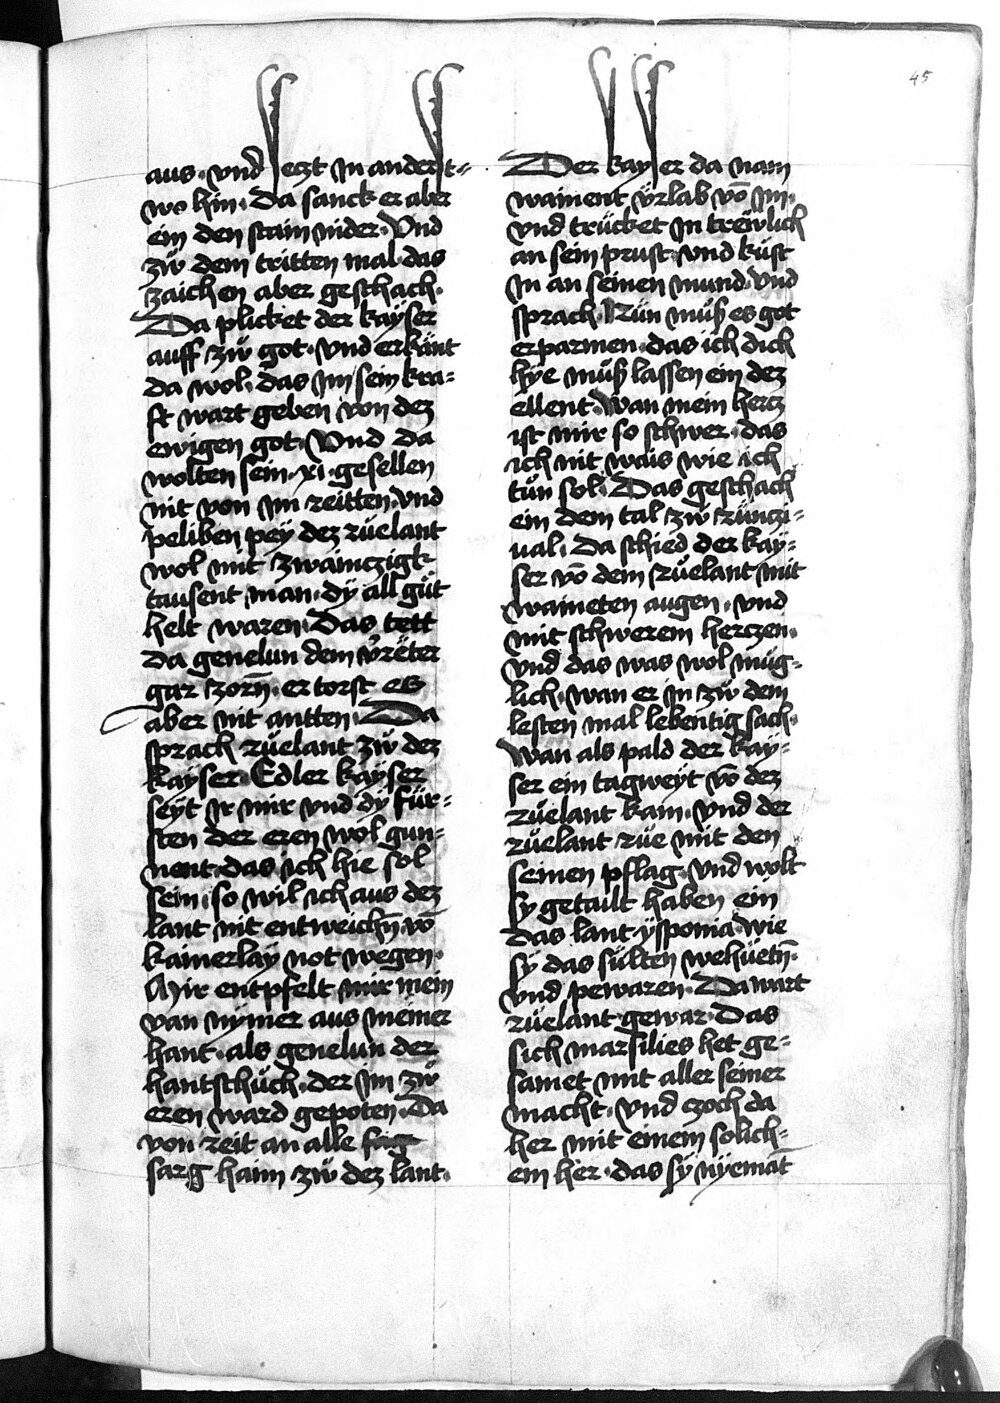 45
aus · vnd seczt Jn anderst=
wo hin · Da sanck er aber
ein den stain nider · Vnd
zẅ dem tritten mal das
zaichen aber geschach ·
Da plicket der kayser
auff zẅ got · vnd erkãnt
da wol · das Jm sein kra=
ft wart geben von dez
ewigen got · Vnd Da
wolten sein · xi · gesellen
nit von Jm reitten · vnd
peliben pey dez rüelant
wol mit zwainczigk
tausent man · dy all güt
helt waren · Das tett
da genelun dem v̈rëter
gar zorñ · er torst es
aber nit antten · Da
sprach rüelant zẅ dez
kayser · Edler kayser
seyt Jr mir vnd dy für=
sten der eren wol gun=
nent · das ich hie sol
sein · so wil ich aus dez
lant nit entweichñ võ
kainerlay not wegen ·
Mir entpfelt mir mein
van nymer aus meiner
hant · als genelun der
hantschüch · der Jm zẅ
eren ward gepoten · Da
von reit an alle
sarg hann · zẅ dez lant ·
Der kayser da nam
wainent v̈rlab võ Jm ·
vnd trücket Jn trëwlich
an sein prust · vnd küst
Jn an seinen mund · vnd
sprach · Nün müß es got
erparmen · das ich dich
hye müß lassen ein dez
ellent · Wan mein hercz
ist mir so schwer · das
ich nit wais wie ich
tün sol · Das geschach
ein dem tal zẅ rünczi=
ual · Da schied der kay=
ser võ dem rüelant mit
waineten augen · vnd
mit schwerem herczen ·
vnd das was wol müg=
lich · wan er Jn zẅ dem
lesten mal lebentig sach ·
Wan als pald der kay=
ser ein tagweyt võ dez
rüelant kam · vnd der
rüelant rüe mit den
seinen pflag · vnd wolt
sy getailt haben ein
das lant ysponia · wie
sy das sülten wehüetñ ·
vnd pewaren · Da wart
rüelant gewar · Das
sich marsilies het ge=
samet mit aller seiner
macht · vnd czoch da
her mit einem solich=
em her · das sy nyemãt